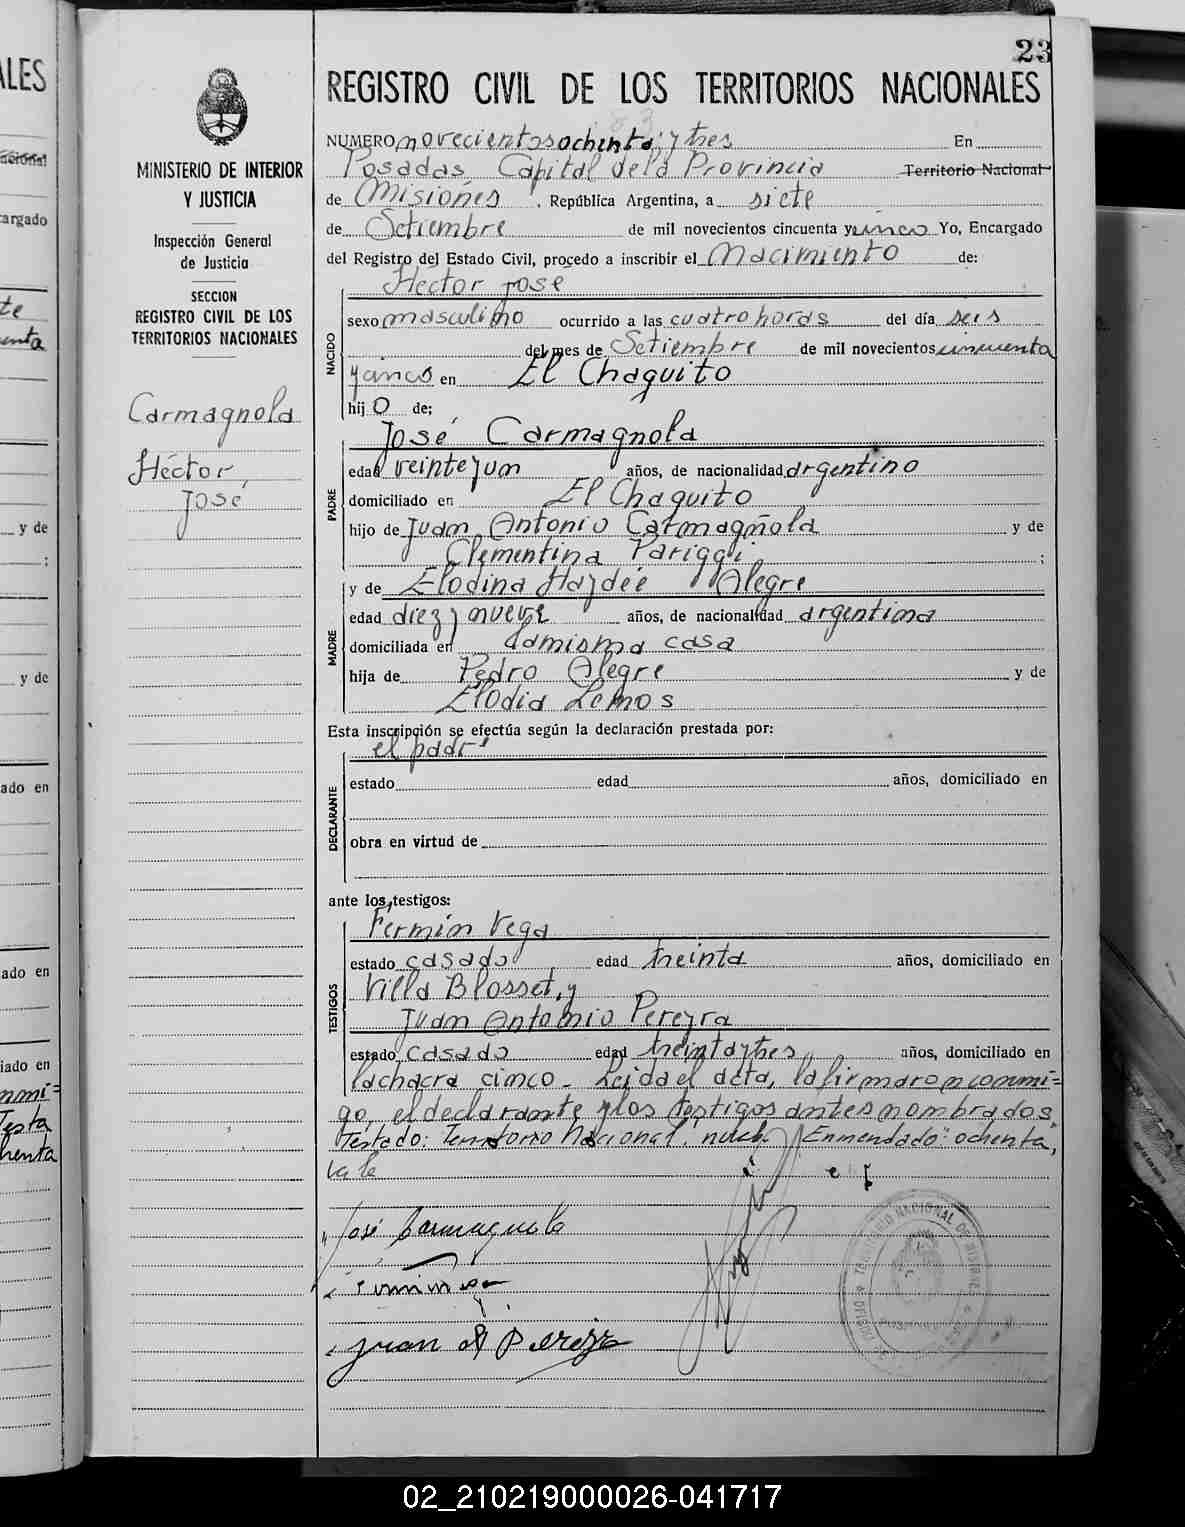 23
REGISTRO CIVIL DE LOS TERRITORIOS NACIONALES
MINISTERIO DE INTERIOR
Y JUSTICIA
Inspección General
de Justicia
SECCION
REGISTRO CIVIL DE LOS
TERRITORIOS NACIONALES
Carmagnola
Héctor
José
NUMERO novecientos ochenta y tres En
Posadas Capital de la Provincia Territorio Nacional
de Misiones, República Argentina, a siete
de Setiembre de mil novecientos cincuenta y cinco Yo, Encargado
del Registro del Estado Civil, procedo a inscribir el Nacimiento de:
NACIDO
Hector jose
sexo masculino ocurrido a las cuatro horas del día seis
del mes de Setiembre de mil novecientos cincuenta
y cinco en El Chaquito
hijo de;
PADRE
José Carmagnola
edad veinte y un años, de nacionalidad argentino
domiciliado en El Chaquito
hijo de Juan Antonio Carmagñola y de
Clementina Pariggi ;
MADRE
y de Elodina Haydée Alegre
edad diez y nueve años, de nacionalidad argentina
domiciliada en la misma casa
hija de Pedro Alegre y de
Elodia Lemos
Esta inscripción se efectúa según la declaración prestada por:
el padre
DECLARANTE
estado edad años, domiciliado en
obra en virtud de
ante los testigos:
TESTIGOS
Fermin Vega
estado casado edad treinta años, domiciliado en
Villa Blosset, y
Juan Antonio Pereyra
estado casado edad treinta y tres años, domiciliado en
la chacra cinco - Leida el acta, la firmaron conmi=
go, el declarante y los testigos antes nombrados.
Testado: Territorio Nacional, Enmendado: ochenta,
vale
José Carmagnola
Juan A Pereyra
02_210219000026-041717